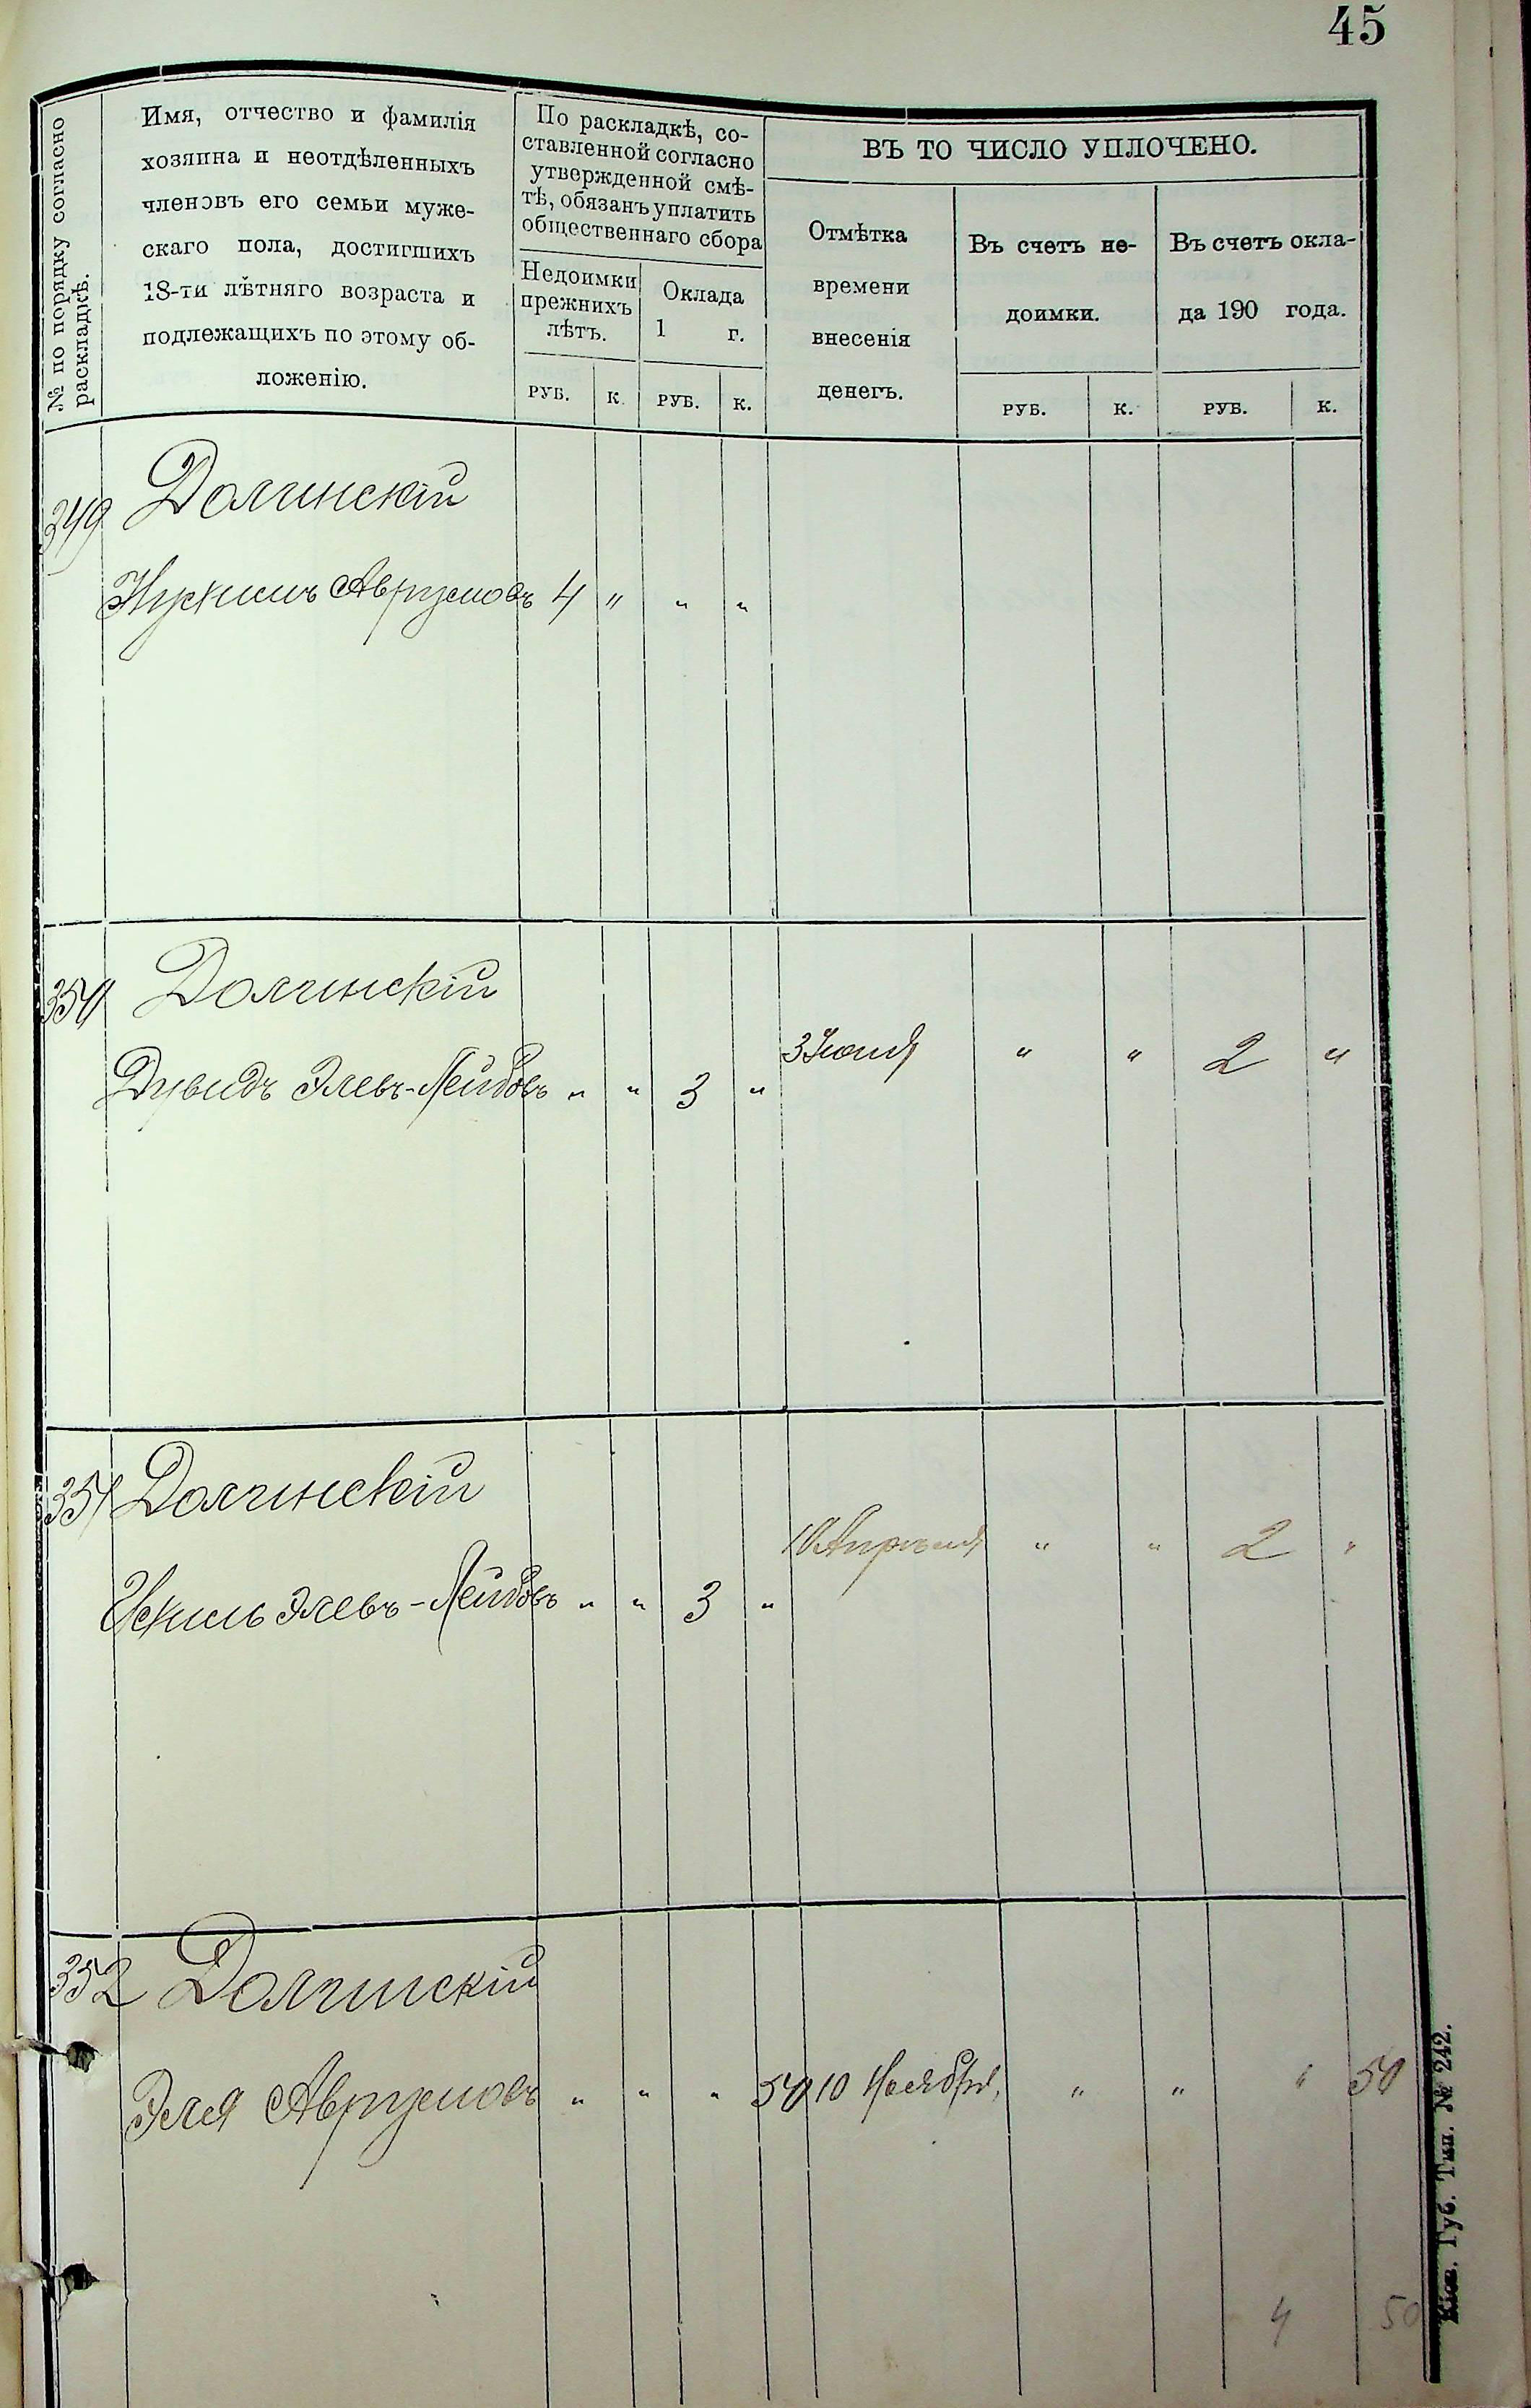 45
№ по порядку согласно
раскладкѣ.
Имя, отчество и фамилія
хозяина и неотдѣленныхъ
членовъ его семьи муже-
скаго пола, достигшихъ
18-ти лѣтняго возраста и
подлежащихъ по этому об-
ложенію.
По раскладкѣ, со-
ставленной согласно
утвержденной смѣ-
тѣ, обязанъ уплатить
общественнаго сбора
Недоимки
прежнихъ
лѣтъ.
Оклада
1 г.
РУБ. К. РУБ. К.
ВЪ ТО ЧИСЛО УПЛОЧЕНО.
Отмѣтка
времени
внесенія
денегъ.
Въ счетъ не-
доимки.
Въ счетъ окла-
да 190 года.
РУБ. К. РУБ. К.
349 Долинскій
Аврумовъ 4 " " "
350 Долинскій
Дувидъ Элевъ-Лейбовъ " " 3 " " " 2 "
351 Долинскій
Искиль Элевъ-Лейбовъ " " 3 " 10 Апрѣля " " 2 "
352 Долинскій
Эля Аврумовъ " " " 50 10 Ноября, " " " 50
4 50
Кіев. Губ. Тип. № 242.